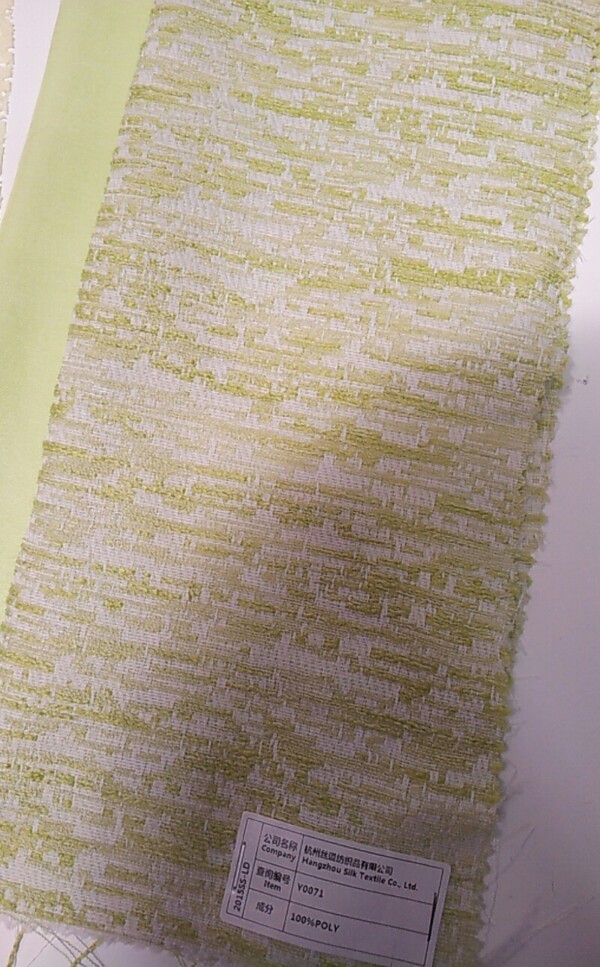 2015SS-LD
公司名称 杭州丝恩纺织品有限公司
Company Hangzhou Silk Textile Co., Ltd.
查询编号
Item Y0071
成分 100%POLY